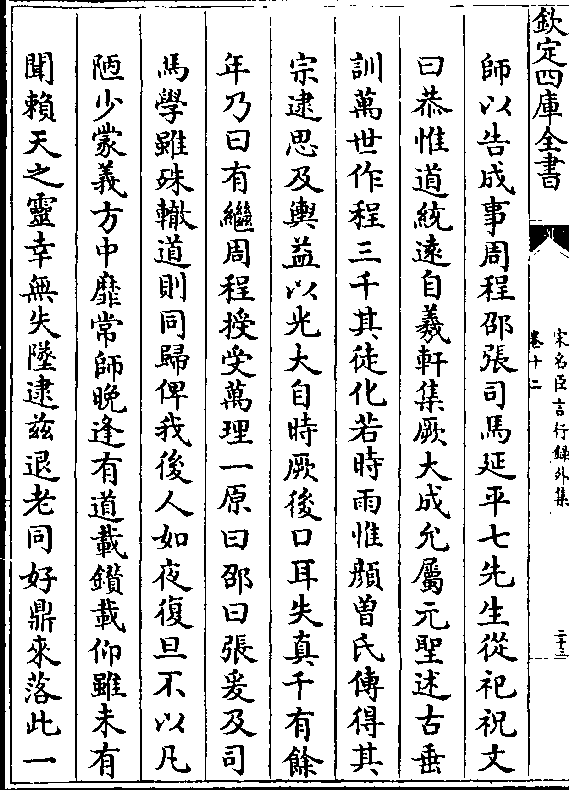 欽定四庫全書
宋名臣言行録外集
卷十二
二十三
師以告成事周程邵張司馬延平七先生從祀祝文
曰恭惟道統逺自羲軒集厥大成允屬元聖述古垂
訓萬世作程三千其徒化若時雨惟顔曽氏傳得其
宗逮思及輿益以光大自時厥後口耳失真千有餘
年乃曰有繼周程授受萬理一原曰邵曰張爰及司
馬學雖殊轍道則同歸俾我後人如夜復旦不以凡
陋少蒙義方中靡常師晚逢有道載鑚載仰雖未有
聞賴天之靈幸無失墜逮兹退老同好鼎來落此一